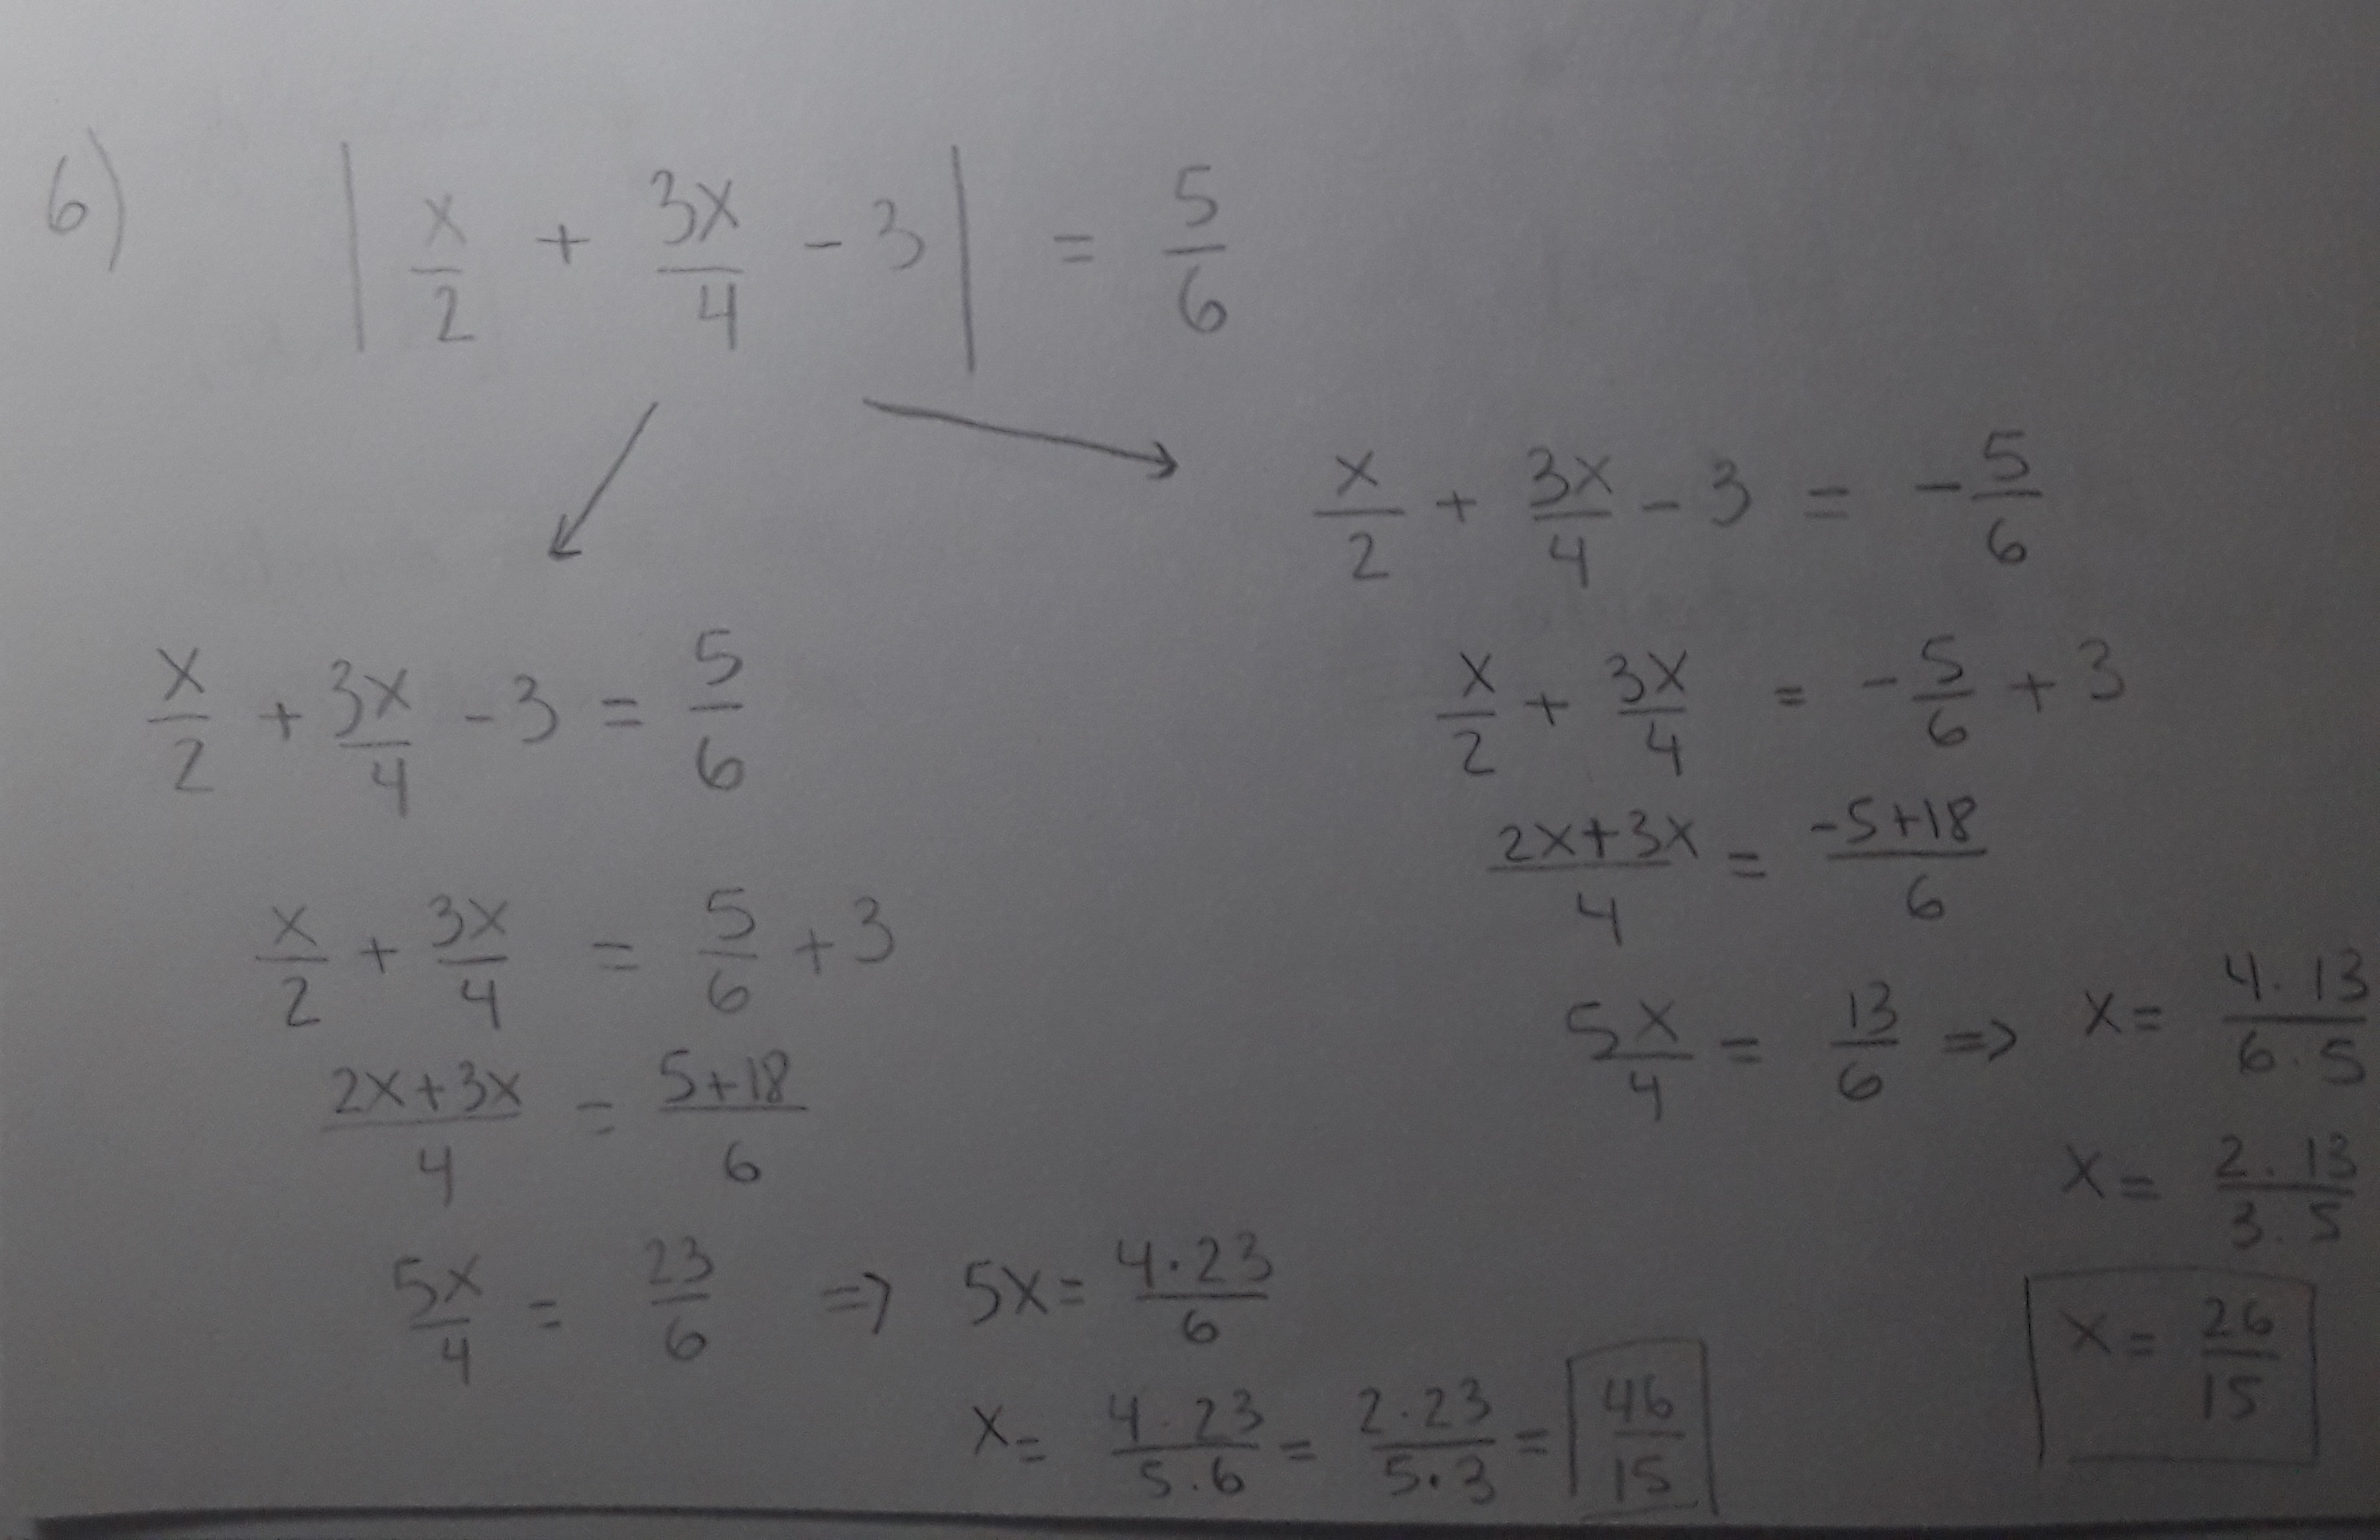 6) | x/2 + 3x/4 - 3 | = 5/6
x/2 + 3x/4 - 3 = 5/6
x/2 + 3x/4 = 5/6 + 3
2x+3x/4 = 5+18/6
5x/4 = 23/6 => 5x = 4·23/6
x = 4·23/5·6 = 2·23/5·3 = 46/15
x/2 + 3x/4 - 3 = -5/6
x/2 + 3x/4 = -5/6 + 3
2x+3x/4 = -5+18/6
5x/4 = 13/6 => x = 4·13/6·5
x = 2·13/3·5
x = 26/15